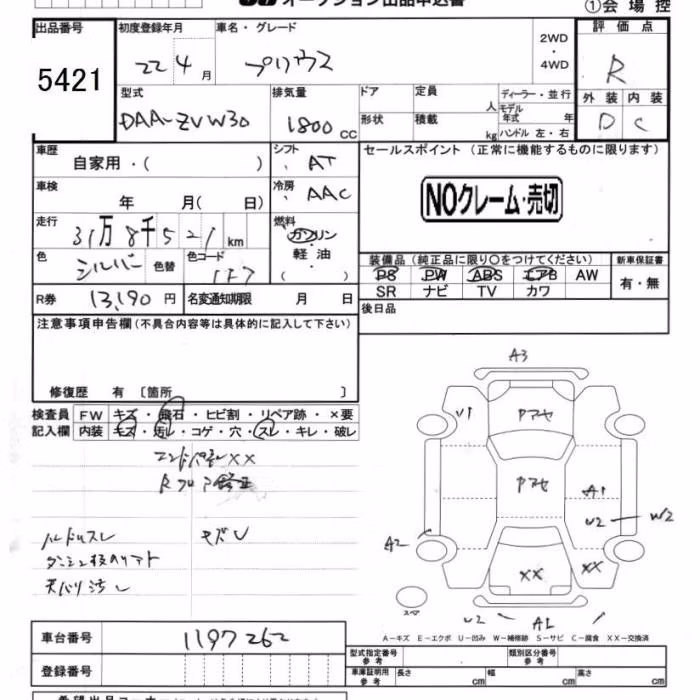 オークション出品申込書
①会場控
出品番号 初度登録年月 車名・グレード 2WD・4WD 評価点
5421 22 4月 プリウス R
型式 排気量 ドア 定員 人 ディーラー・並行 外装 内装
DAA-ZVW30 1800cc 形状 積載 kg モデル年式 年 ハンドル 左・右 D C
車歴 シフト セールスポイント(正常に機能するものに限ります)
自家用・( ) AT
車検 冷房 NOクレーム・売切
年 月( 日) AAC
走行 燃料
31万8千521km ガソリン・軽油・( )
色 色替 色コード 装備品(純正品に限り○をつけてください) 新車保証書
シルバー 1F7 PS PW ABS エアB AW 有・無
R券 13,190円 名変通知期限 月 日 SR ナビ TV カワ
注意事項申告欄(不具合内容等は具体的に記入して下さい) 後日品
修復歴 有 〔箇所 〕
検査員 FW キズ・飛石・ヒビ割・リペア跡・×要
記入欄 内装 キズ・汚レ・コゲ・穴・スレ・キレ・破レ
XX
Rフロア修正
ハンドルスレ キズU
天バリ汚レ
A3
U1
Pマセ
PマセA1
U2 W2
A2
XX XX
スペア
U2 A2
A-キズ E-エクボ U-凹み W-補修跡 S-サビ C-腐食 XX-交換済
車台番号 1197262
型式指定番号 参考 類別区分番号 参考
登録番号 車庫証明用 参考 長さ cm 幅 cm 高さ cm